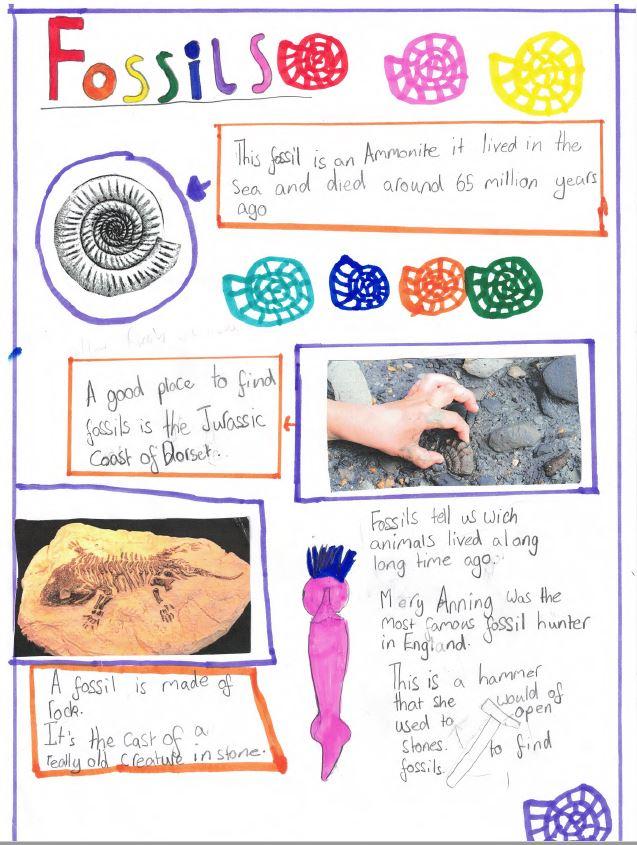 Fossils
This fossil is an Ammonite it lived in the
Sea and died around 65 million years
ago
A good place to find
fossils is the Jurassic
Coast of Dorset..
Fossils tell us wich
animals lived along
long time ago.
Mery Anning was the
most famous fossil hunter
in England.
A fossil is made of
rock.
It's the cast of a
really old creature in stone.
This is a hammer
that she would of
used to open
stones. to find
fossils.